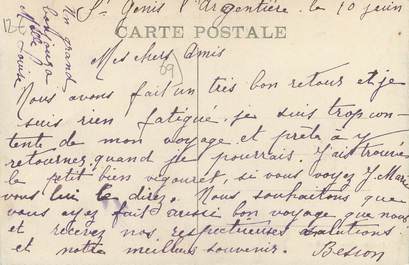 St Genis l'Argentière le 10 juin
CARTE POSTALE
Mes chers Amis
Nous avons fait un très bon retour et je
suis rien fatigué, je suis trop con-
tente de mon voyage et prête a y
retourner quand je pourrais. J'ais trouvé
le petit bien vigouret, si vous voyez J. Marie
vous lui le direz. Nous souhaitons que
vous ayez fait aussi bon voyage que nous
et recevez nos respectueuses salutations
et notre meilleur souvenir. Besson
Un grand
bonjour a
Melle
Louise